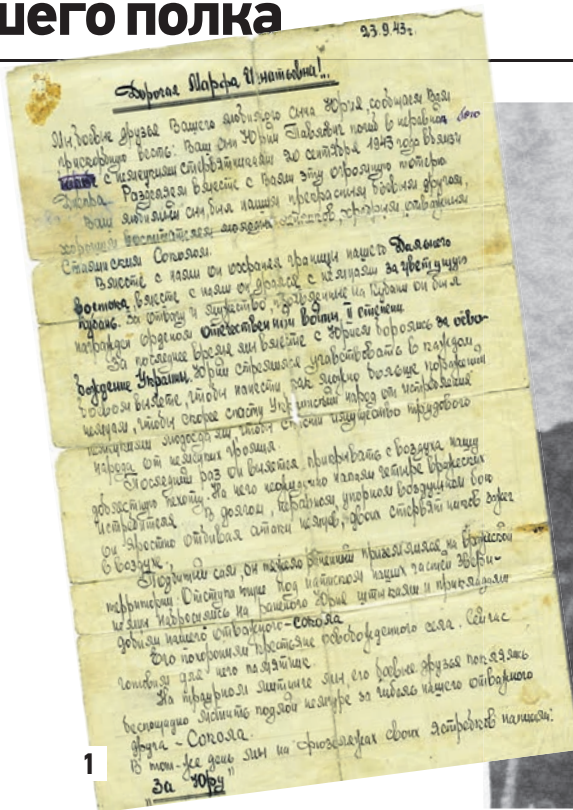 шего полка
23.9.43г.
Дорогая Марфа Игнатьевна!..
Мы боевые друзья Вашего любимого сына Юрия, сообщаем Вам
прискорбную весть: Ваш сын Юрий Павлович погиб в неравном бою
с немецкими стервятниками 20 сентября 1943 года вблизи
Днепра. Разделяем вместе с Вами эту огромную потерю.
Ваш любимый сын был нашим прекрасным боевым другом,
хорошим воспитателем молодых летчиков, храбрым отважным
Сталинским Соколом.
Вместе с нами он охранял границы нашего Дальнего
Востока, вместе с нами он дрался с немцами за цветущую
Кубань. За отвагу и мужество, проявленные на Кубани он был
награжден орденом Отечественной войны II степени.
За последнее время мы вместе с Юрием боролись за осво-
бождение Украины. Юрий стремился участвовать в каждом
боевом вылете, чтобы нанести как можно больше поражений
немцам, чтобы скорее спасти Украинский народ от истребления
немецкими людоедами, чтобы спасти имущество трудового
народа от немецких громил.
Последний раз он вылетел прикрывать с воздуха нашу
доблестную пехоту. На него неожиданно напали четыре вражеских
истребителя. В долгом, неравном упорном воздушном бою
он яростно отбивал атаки немцев, двоих стервятников зажег
в воздухе.
Подбитый сам, он тяжело раненный приземлился на вражеской
территории. Отступающие под натиском наших частей звери-
немцы набросились на раненого Юрия штыками и прикладами
добили нашего отважного-сокола
Его похоронили крестьяне освобожденного села. Сейчас
готовим для него памятник.
На траурном митинге мы его боевые друзья поклялись
беспощадно мстить подлой немчуре за гибель нашего отважного
друга - Сокола.
В тот-же день мы на фюзеляжах своих ястребков написали:
"За Юру"
1